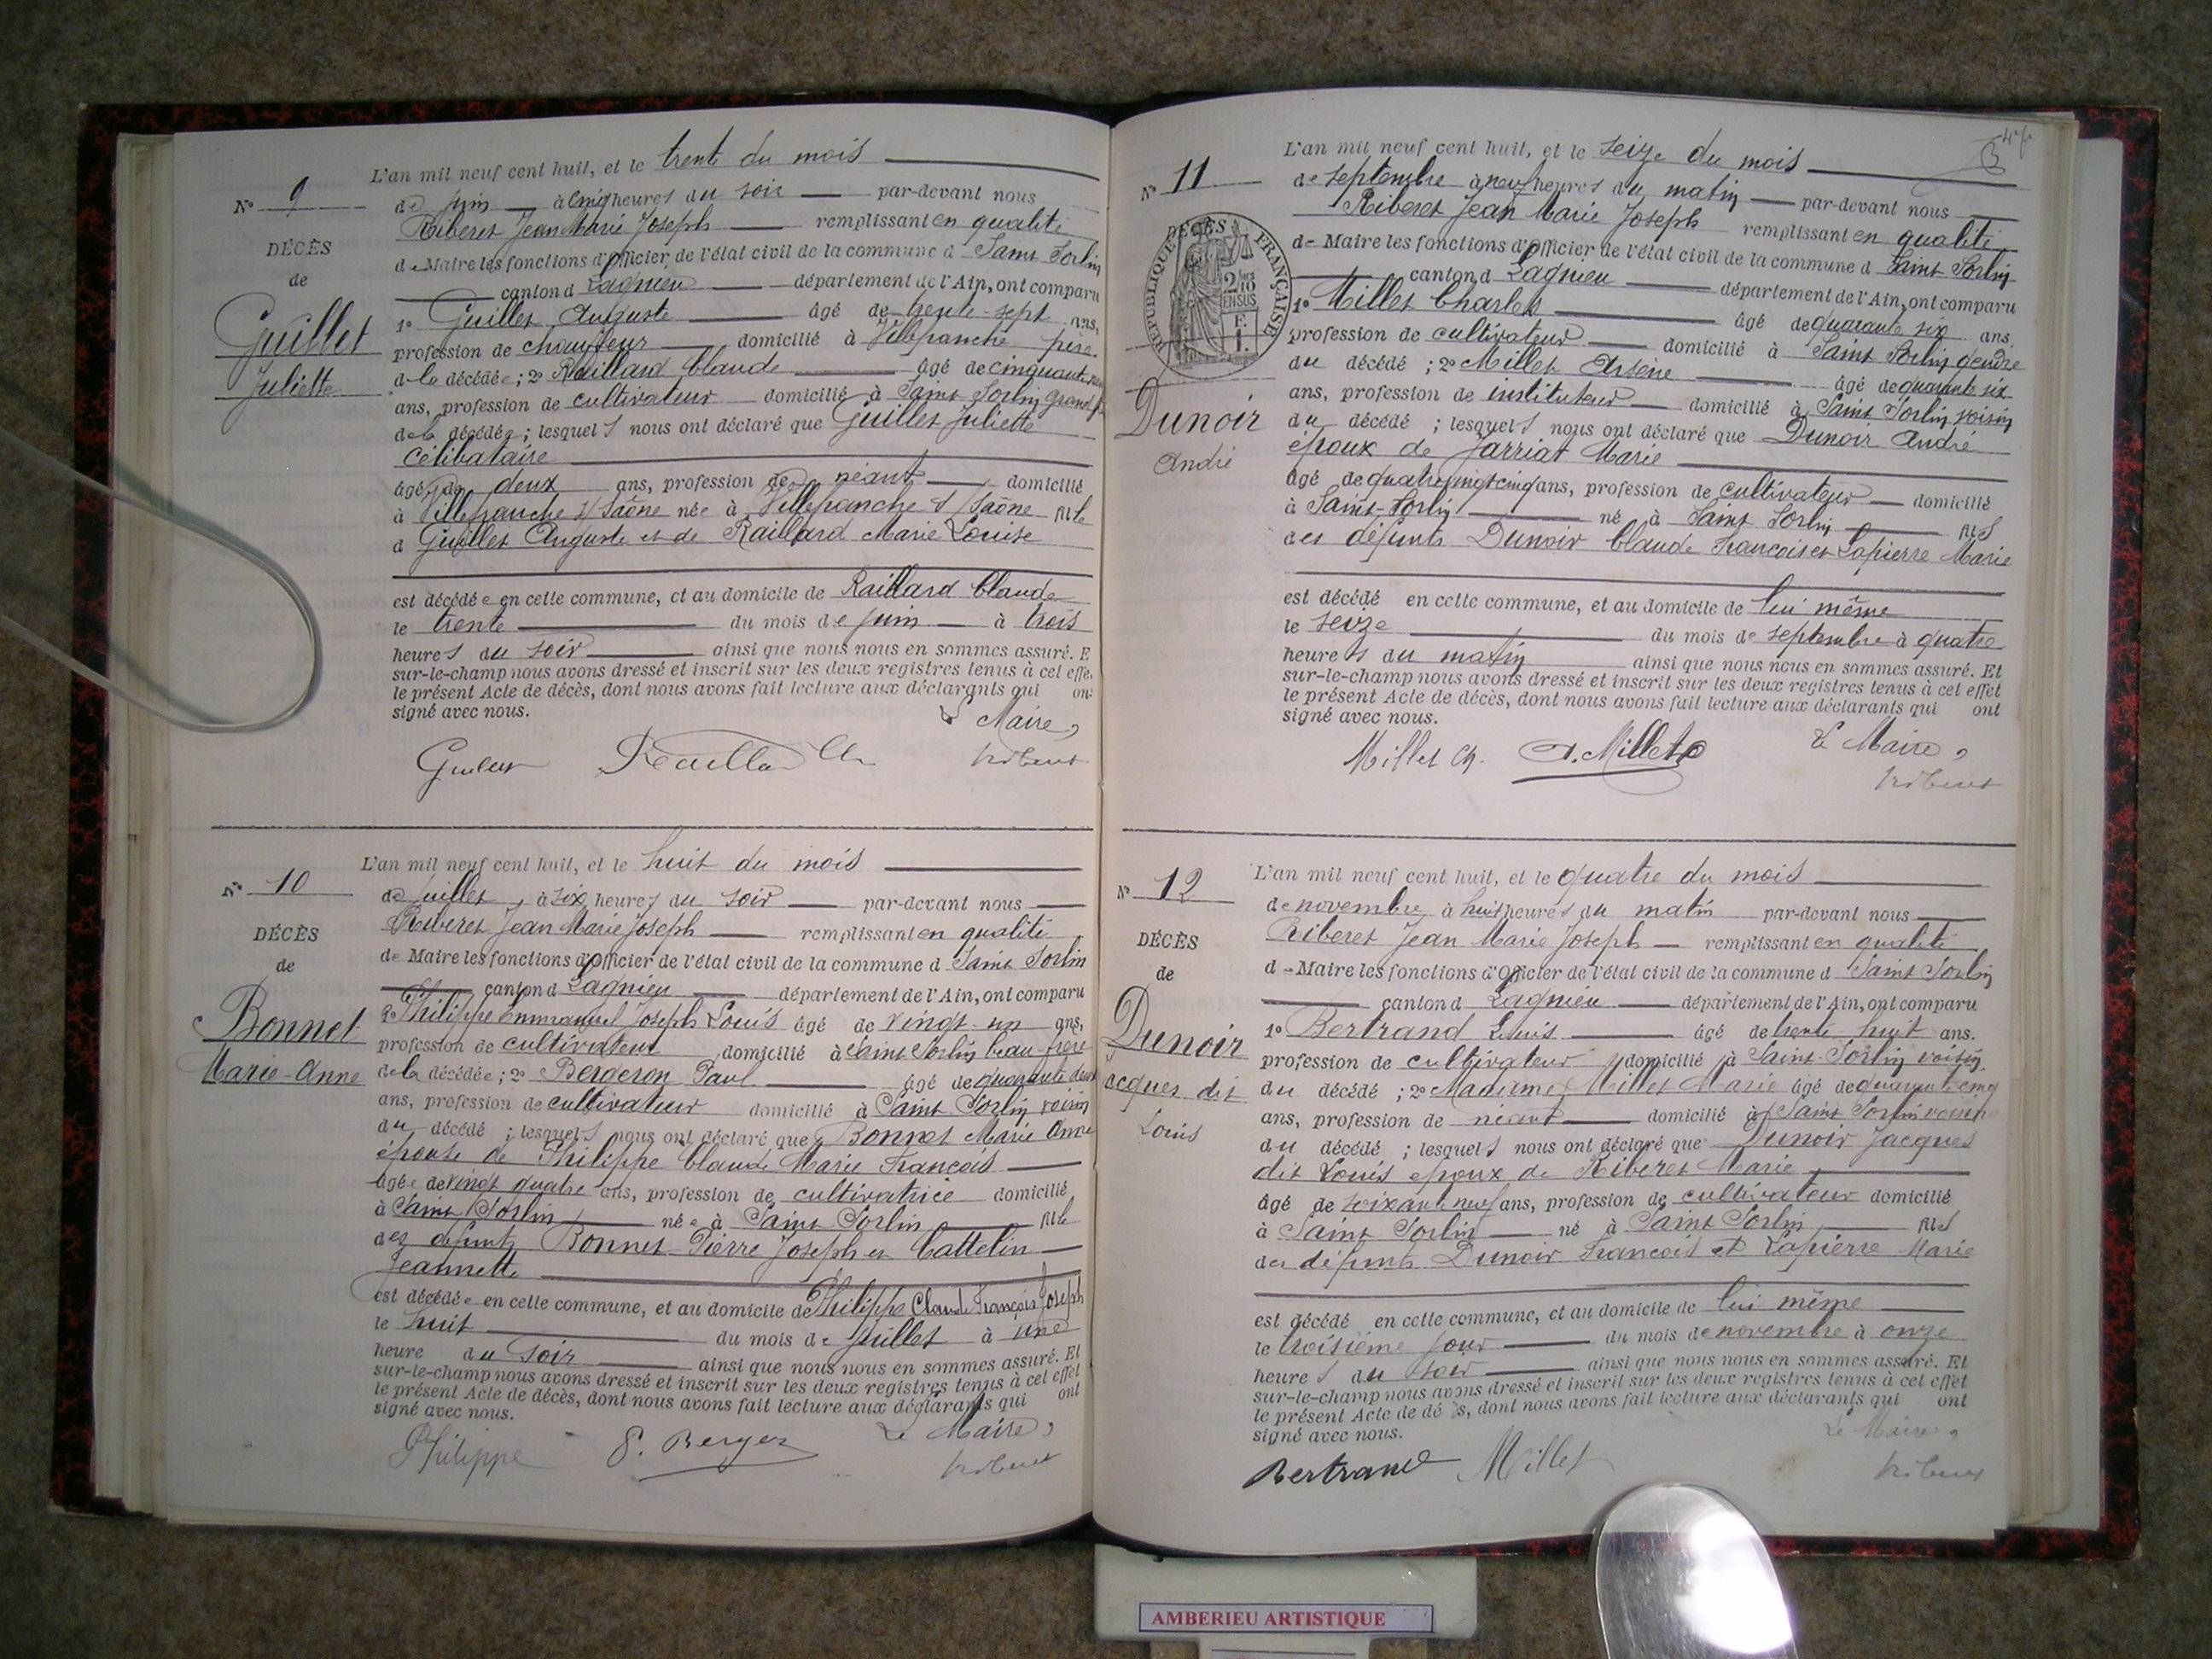 L'an mil neuf cent huit, et le trente du mois
N° 9
de juin à cinq heures du soir par-devant nous
Riberet Jean Marie Joseph remplissant en qualité
de Maire les fonctions d'officier de l'état civil de la commune d Saint Sorlin
DÉCÈS
de
Guillet
Juliette
canton d Lagnieu département de l'Ain, ont comparu
1° Guillet Auguste âgé de trente-sept ans,
profession de chauffeur domicilié à Villefranche père
de la décédée ; 2° Raillard Claude âgé de cinquante
ans, profession de cultivateur domicilié à Saint Sorlin grand
de la décédée ; lesquels nous ont déclaré que Guillet Juliette
Célibataire
âgée de deux ans, profession de néant domicilié
à Villefranche s/ Saône née à Villefranche s/ Saône fille
d Guillet Auguste et de Raillard Marie Louise
est décédée en cette commune, et au domicile de Raillard Claude
le trente du mois de juin à trois
heures du soir ainsi que nous nous en sommes assuré. E
sur-le-champ nous avons dressé et inscrit sur les deux registres tenus à cet effe
le présent Acte de décès, dont nous avons fait lecture aux déclarants qui on
signé avec nous.
Le Maire,
Raillard Cl
Riberet
L'an mil neuf cent huit, et le huit du mois
N° 10
de juillet, à six heures du soir par-devant nous
Riberet Jean Marie Joseph remplissant en qualité
de Maire les fonctions d'officier de l'état civil de la commune d Saint Sorlin
DÉCÈS
de
Bonnet
Marie-Anne
canton d Lagnieu département de l'Ain, ont comparu
1° Philippe Emmanuel Joseph Louis âgé de vingt-un ans,
profession de cultivateur domicilié à Saint Sorlin beau-frère
de la décédée ; 2° Bergeron Paul âgé de quarante deux
ans, profession de cultivateur domicilié à Saint Sorlin voisin
du décédé ; lesquels nous ont déclaré que Bonnet Marie Anne
épouse de Philippe Claude Marie François
âgée de vingt quatre ans, profession de cultivatrice domicilié
à Saint Sorlin née à Saint Sorlin fille
des défunts Bonnet Pierre Joseph et Cattelin
Jeannette
est décédée en cette commune, et au domicile de Philippe Claude François Joseph
le huit du mois de juillet à une
heure du soir ainsi que nous nous en sommes assuré. Et
sur-le-champ nous avons dressé et inscrit sur les deux registres tenus à cet effet
le présent Acte de décès, dont nous avons fait lecture aux déclarants qui ont
signé avec nous.
Le Maire,
Philippe P. Berger Riberet
L'an mil neuf cent huit, et le seize du mois
N° 11
de septembre à neuf heures du matin par-devant nous
Riberet Jean Marie Joseph remplissant en qualité
de Maire les fonctions d'officier de l'état civil de la commune d Saint Sorlin
DÉCÈS
RÉPUBLIQUE FRANÇAISE
2/10 EN SUS
Dunoir
André
canton d Lagnieu département de l'Ain, ont comparu
1° Millet Charles âgé de quarante six ans.
profession de cultivateur domicilié à Saint Sorlin gendre
du décédé ; 2° Millet Arsène âgé de quarante six
ans, profession de instituteur domicilié à Saint Sorlin voisin
du décédé ; lesquels nous ont déclaré que Dunoir André
époux de Jarriat Marie
âgé de quatre vingt cinq ans, profession de cultivateur domicilié
à Saint-Sorlin né à Saint Sorlin fils
des défunts Dunoir Claude François et Lapierre Marie
est décédé en cette commune, et au domicile de lui même
le seize du mois de septembre à quatre
heures du matin ainsi que nous nous en sommes assuré. Et
sur-le-champ nous avons dressé et inscrit sur les deux registres tenus à cet effet
le présent Acte de décès, dont nous avons fait lecture aux déclarants qui ont
signé avec nous.
Le Maire,
Millet Ch. A. Millet Riberet
L'an mil neuf cent huit, et le quatre du mois
N° 12
de novembre, à huit heures du matin par-devant nous
Riberet Jean Marie Joseph remplissant en qualité
de Maire les fonctions d'officier de l'état civil de la commune d Saint Sorlin
DÉCÈS
de
Dunoir
Jacques dit
Louis
canton d Lagnieu département de l'Ain, ont comparu
1° Bertrand Louis âgé de trente huit ans.
profession de cultivateur domicilié à Saint Sorlin voisin
du décédé ; 2° Madame Millet Marie âgé de quarante cinq
ans, profession de néant domicilié à Saint Sorlin voisin
du décédé ; lesquels nous ont déclaré que Dunoir Jacques
dit Louis époux de Riberet Marie
âgé de soixante neuf ans, profession de cultivateur domicilié
à Saint Sorlin né à Saint Sorlin fils
des défunts Dunoir François et Lapierre Marie
est décédé en cette commune, et au domicile de lui même
le troisième jour du mois de novembre à onze
heures du soir ainsi que nous nous en sommes assuré. Et
sur-le-champ nous avons dressé et inscrit sur les deux registres tenus à cet effet
le présent Acte de dé ès, dont nous avons fait lecture aux déclarants qui ont
signé avec nous.
Le Maire,
Bertrand Millet Riberet
AMBERIEU ARTISTIQUE